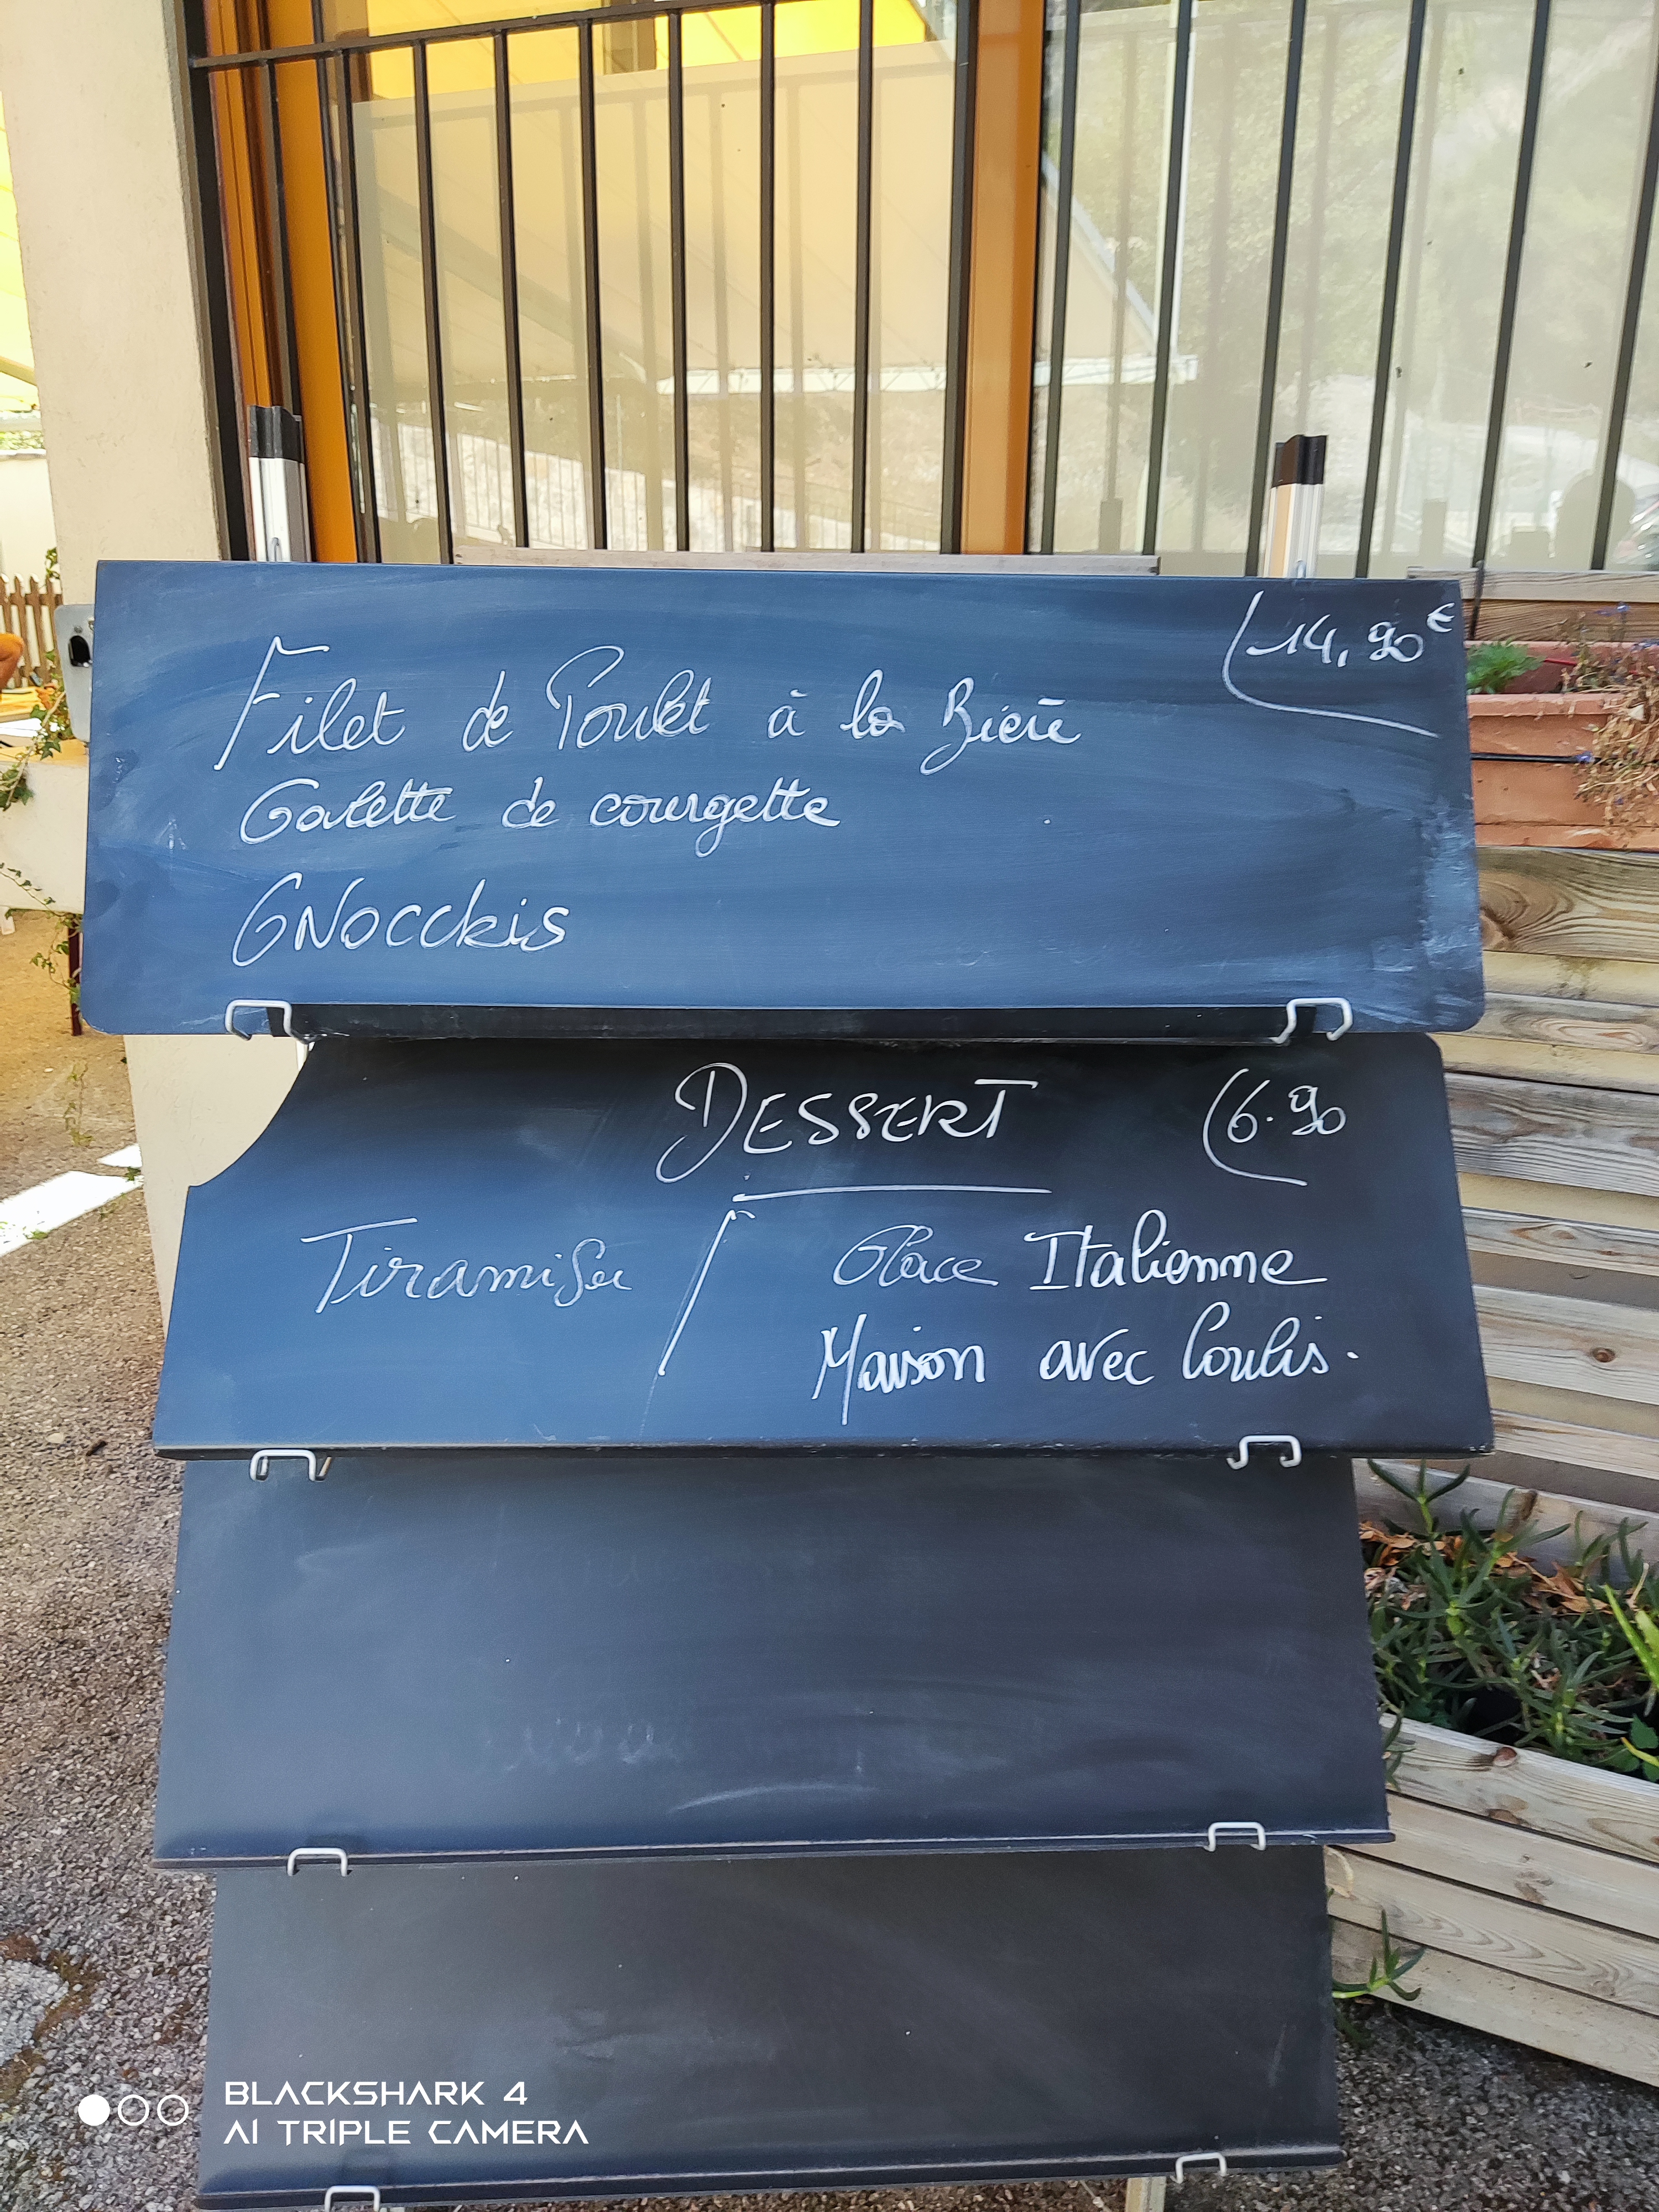 14,90€
Filet de Poulet à la Bière
Galette de courgette
GNOCCHIS
DESSERT
6.90
Tiramisu / Glace Italienne
Maison avec Coulis.
BLACKSHARK 4
AI TRIPLE CAMERA